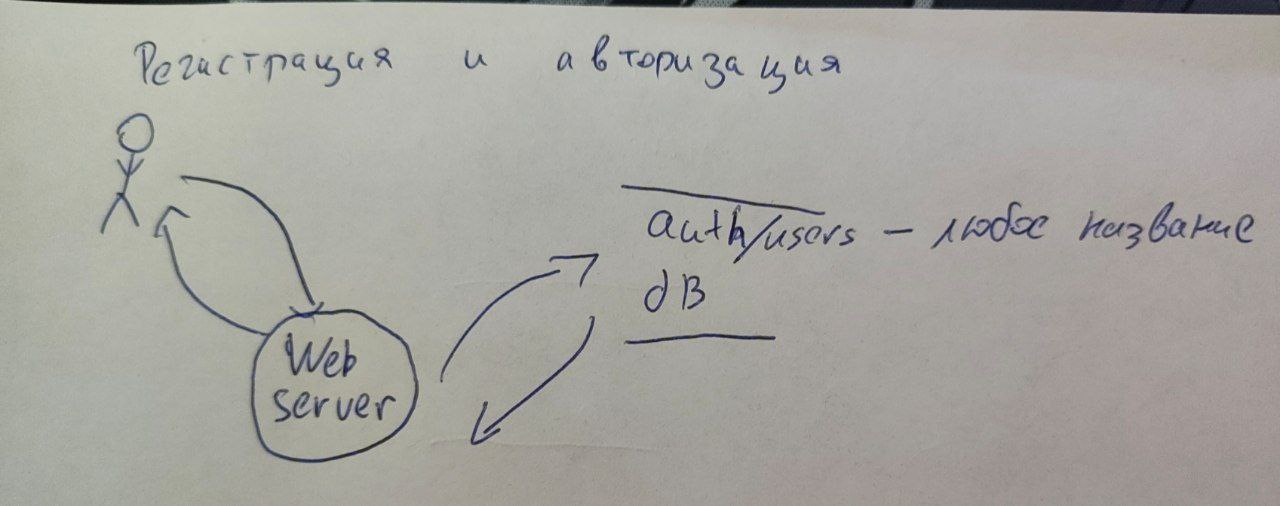 Регистрация и авторизация
auth/users – любое название
dB
Web
server